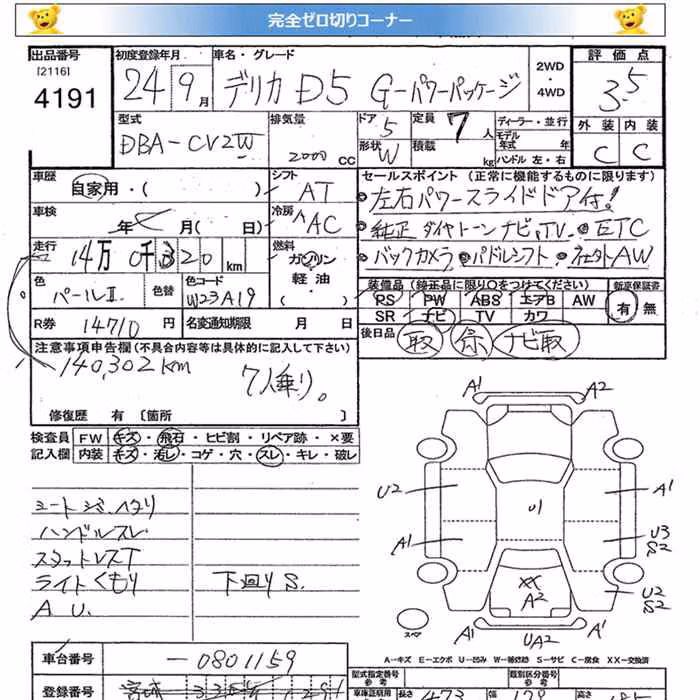 完全ゼロ切りコーナー
出品番号 初度登録年月 車名・グレード 2WD ・ 4WD 評価点
[2116]
4191 24 9月 デリカ D5 G-パワーパッケージ 3.5
型式 排気量 ドア 5 定員 7人 ディーラー・並行 外装 内装
DBA-CV2W 2000 CC 形状 W 積載 kg モデル年式 年 ハンドル 左・右 C C
車歴 自家用・( ) シフト AT
セールスポイント (正常に機能するものに限ります)
左右パワースライドドア付!
車検 年 月( 日) 冷房 AC
純正ダイヤトーンナビ,TV. ETC
走行 14万0千320km 燃料 ガソリン 軽油 ・( )
バックカメラ パドルシフト 社外AW
色 パールⅡ 色替 色コード W23A19
装備品 (純正品に限り○をつけてください) 新車保証書
PS PW ABS エアB AW 有・無
SR ナビ TV カワ
R券 14710円 名変通知期限 月 日
後日品 取 保 ナビ取
注意事項申告欄(不具合内容等は具体的に記入して下さい)
140,302km 7人乗り。
修復歴 有 〔箇所 〕
検査員 FW キズ・飛石・ヒビ割・リペア跡・×要
記入欄 内装 キズ・汚レ・コゲ・穴・スレ・キレ・破レ
シートシワ、ヘタリ
ハンドルスレ
スタットレスT
ライトくもり 下回りS.
A U.
A1 A2
U2 U1 A1
A1 U3
S2
XX
A2 U2
S2
スペア
A1 UA2 A1
A-キズ E-エクボ U-凹み W-補修跡 S-サビ C-腐食 XX-交換済
車台番号 -0801159
型式指定番号 類別区分番号
登録番号 宮城